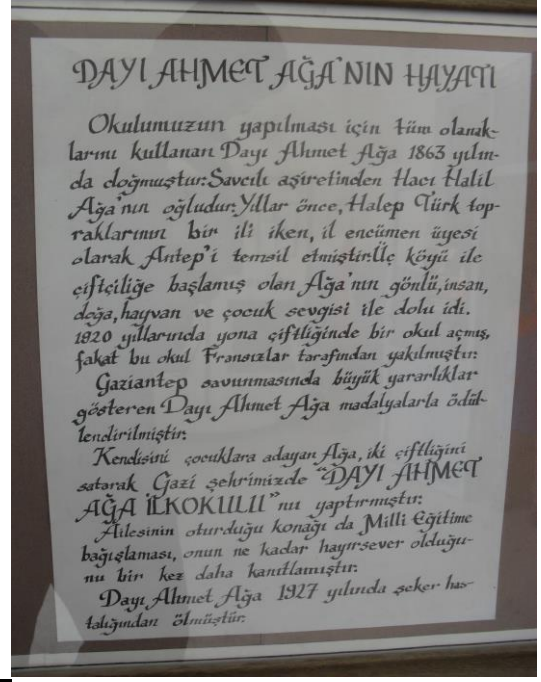 DAYI AHMET AĞA'NIN HAYATI
Okulumuzun yapılması için tüm olanak-
larını kullanan Dayı Ahmet Ağa 1863 yılın-
da doğmuştur. Savcılı aşiretinden Hacı Halil
Ağa'nın oğludur. Yıllar önce, Halep Türk top-
raklarının bir ili iken, il encümen üyesi
olarak Antep'i temsil etmiştir. Üç köyü ile
çiftçiliğe başlamış olan Ağa'nın gönlü, insan,
doğa, hayvan ve çocuk sevgisi ile dolu idi.
1920 yıllarında yona çiftliğinde bir okul açmış,
fakat bu okul Fransızlar tarafından yakılmıştır.
Gaziantep savunmasında büyük yararlıklar
gösteren Dayı Ahmet Ağa madalyalarla ödül-
lendirilmiştir.
Kendisini çocuklara adayan Ağa, iki çiftliğini
satarak Gazi şehrimizde "DAYI AHMET
AĞA İLKOKULU" nu yaptırmıştır.
Ailesinin oturduğu konağı da Milli Eğitime
bağışlaması, onun ne kadar hayırsever olduğu-
nu bir kez daha kanıtlamıştır.
Dayı Ahmet Ağa 1927 yılında şeker has-
talığından ölmüştür.